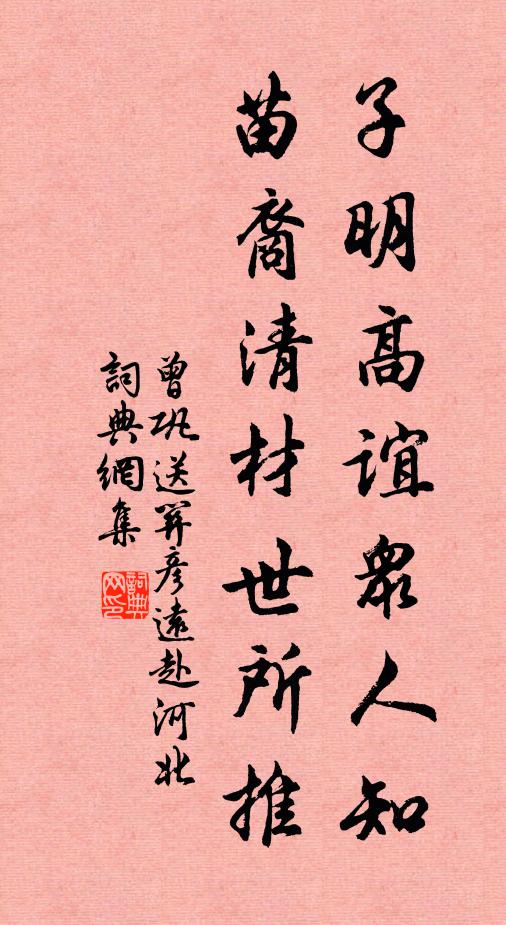 子明高誼衆人知
苗裔清材世所推
曾巩送關彦遠赴河北
詞典網集
詞典网印